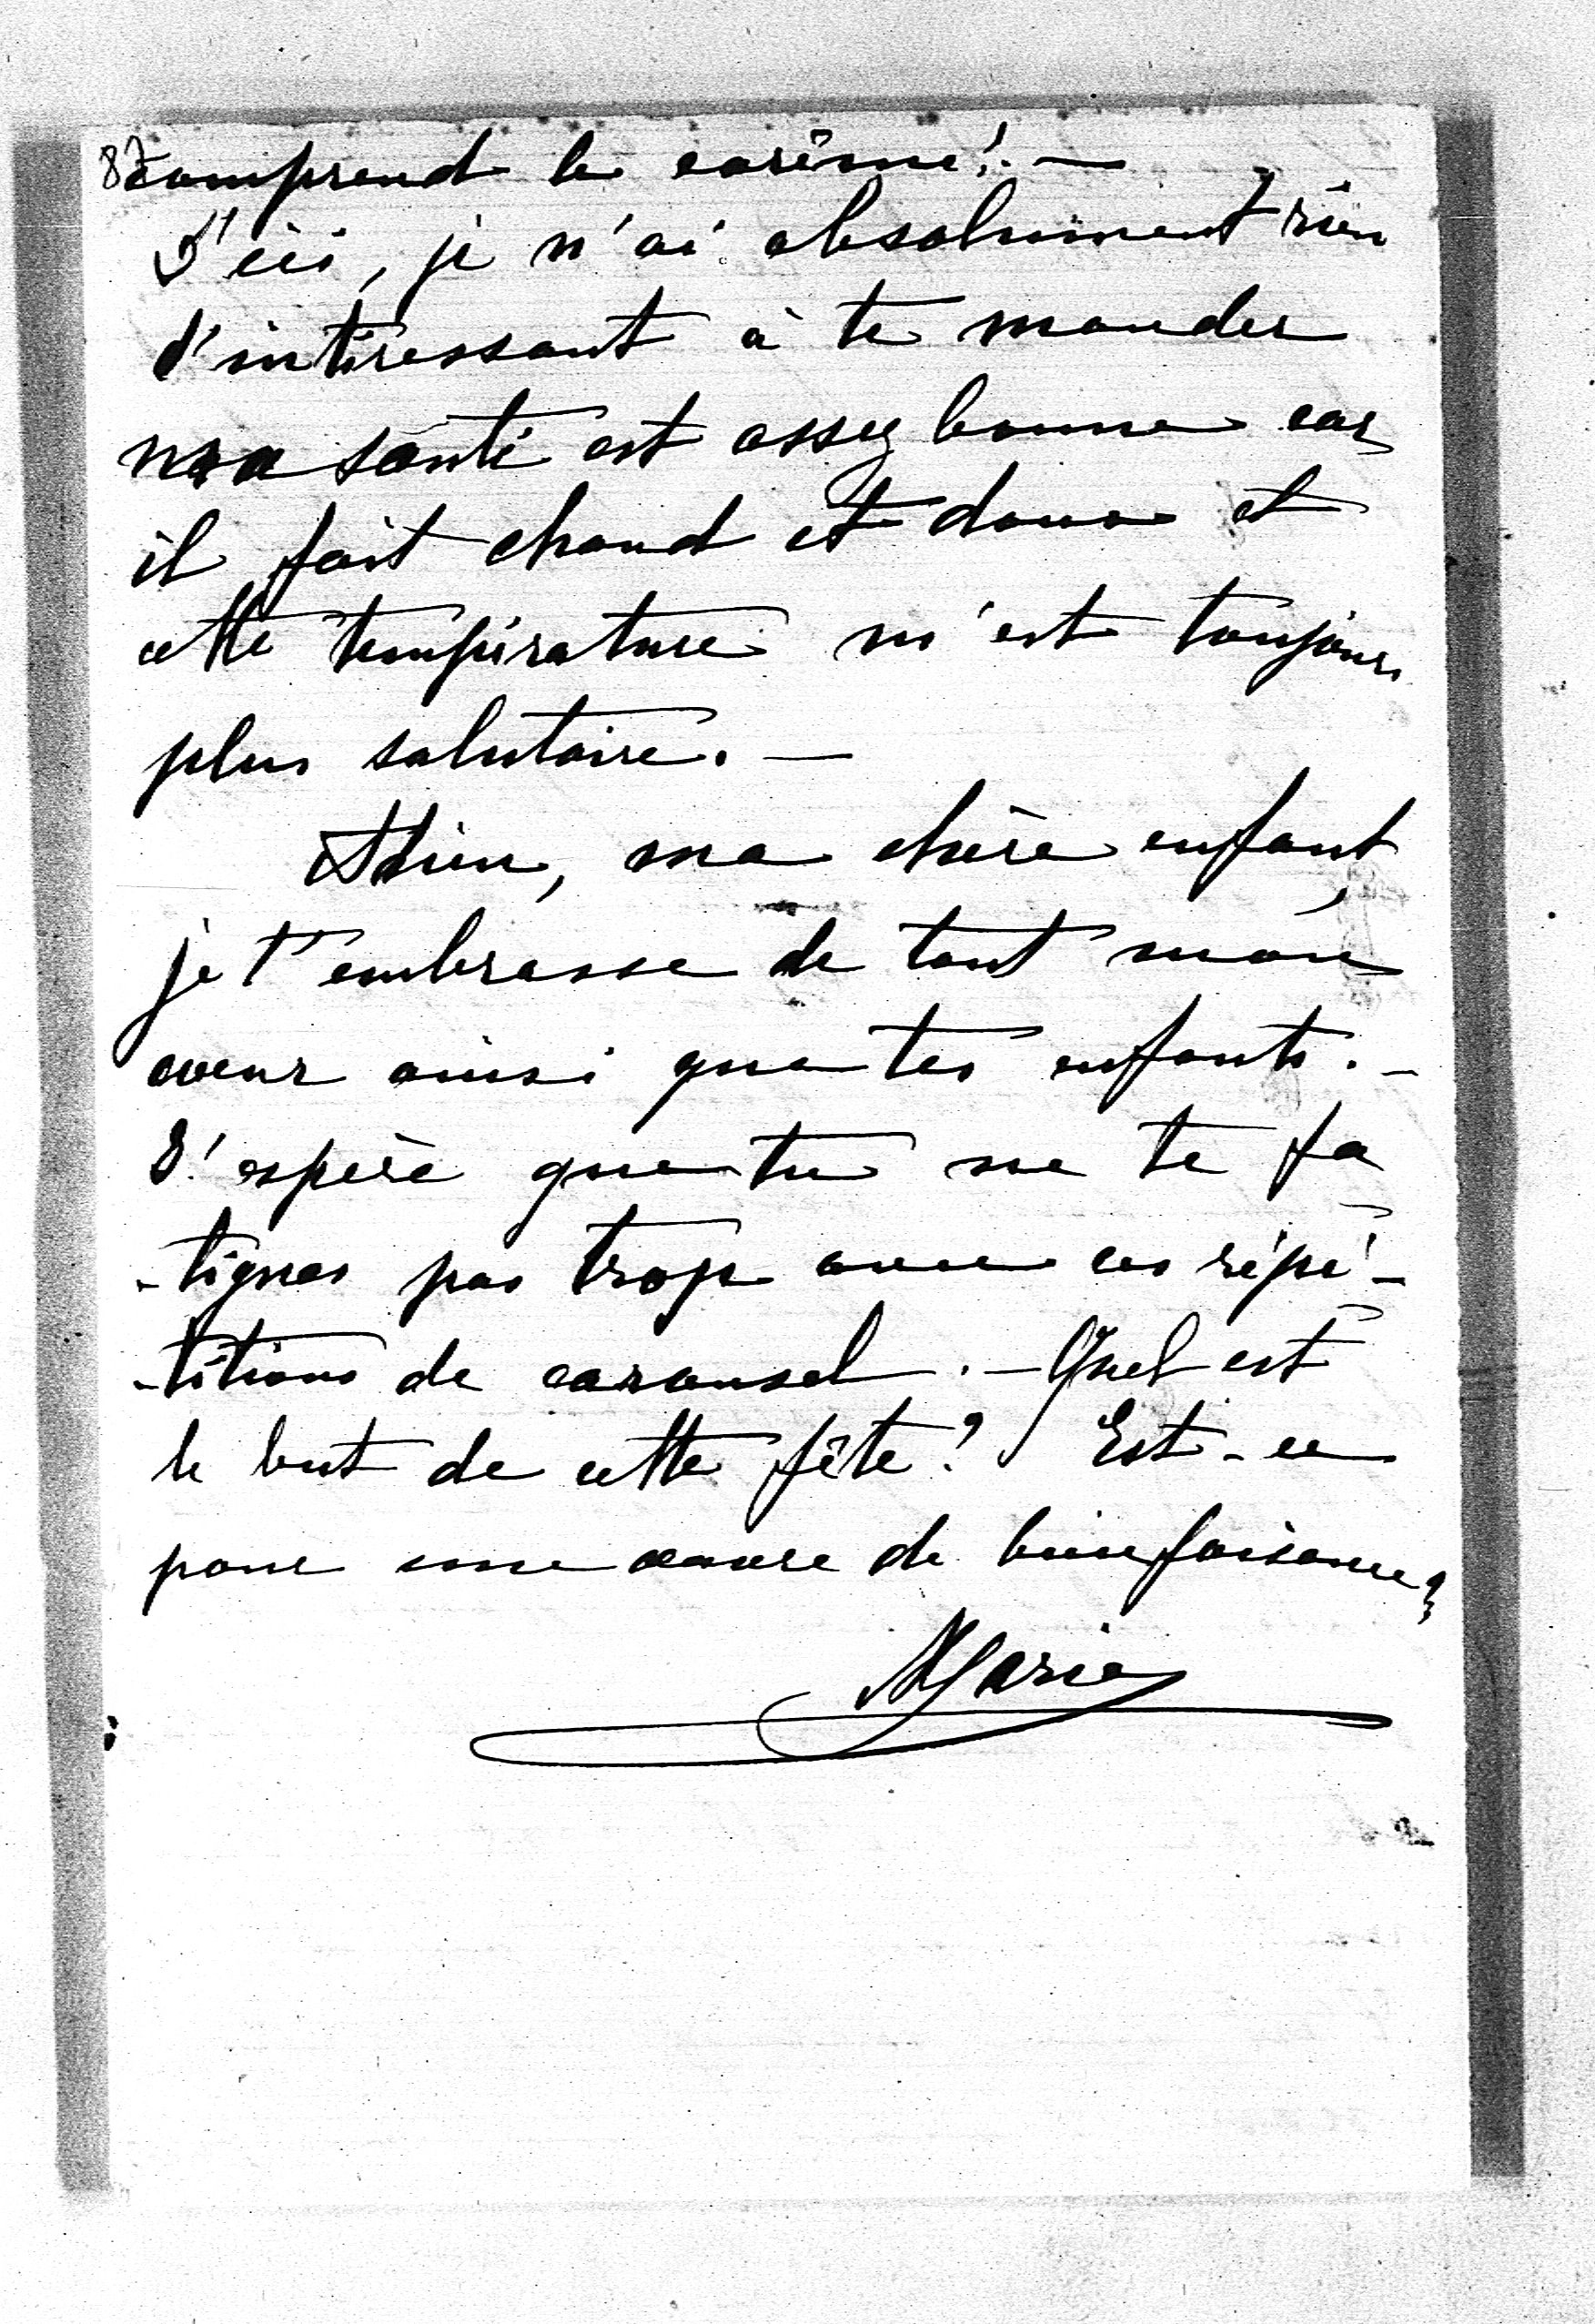 87
comprend le carême! —
D'ici, je n'ai absolument rien
d'intéressant à te mander
ma santé est assez bonne car
il fait chaud et doux et
cette température m'est toujours
plus salutaire. —
Adieu, ma chère enfant,
je t'embrasse de tout mon
coeur ainsi que tes enfants. —
J'espère que tu ne te fa
-tigues pas trop avec ces répé-
-titions de carousel. — Quel est
le but de cette fête? Est-ce
pour une oeuvre de bienfaisance?
Marie